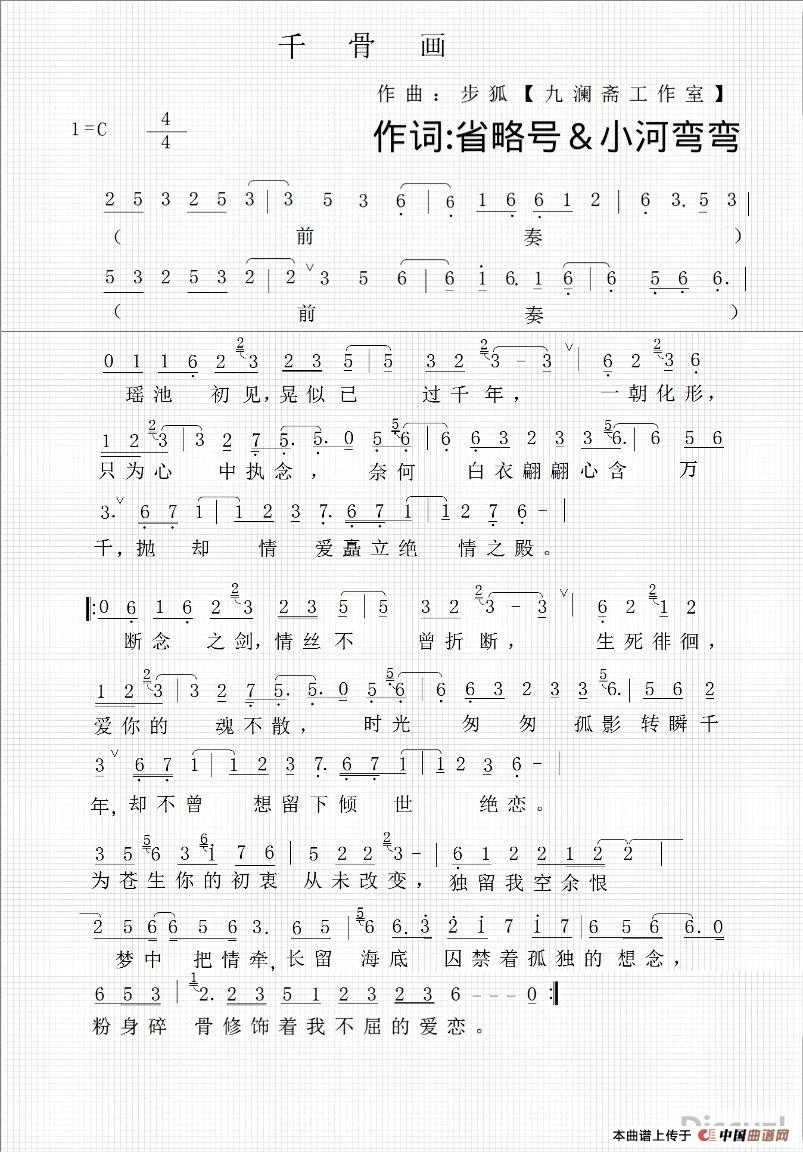 千骨画
作曲：步狐【九澜斋工作室】
作词:省略号＆小河弯弯
1=C 4/4
2 5 3 2 5 3 | 3 5 3 6 | 6 1 6 6 1 2 | 6 3. 5 3 |
（ 前 奏 ）
5 3 2 5 3 2 | 2 ∨ 3 5 6 | 6 1 6. 1 6 | 6 5 6 6. |
（ 前 奏 ）
0 1 1 6 2 3 2 3 5 | 5 3 2 2 3 - 3 ∨ | 6 2 3 6
瑶池 初见,晃似已 过千年， 一朝化形，
1 2 2 3 | 3 2 7 5. 5. 0 5 5 6 | 6 6 3 2 3 3 6. 6 5 6
只为心 中执念， 奈何 白衣翩翩心含 万
3. ∨ 6 7 1 | 1 2 3 7. 6 7 1 | 1 2 7 6 - |
千,抛 却 情 爱矗立绝 情之殿。
‖: 0 6 1 6 2 3 2 3 5 | 5 3 2 2 3 - 3 ∨ | 6 2 1 2
断念 之剑,情丝不 曾折断， 生死徘徊，
1 2 2 3 | 3 2 7 5. 5. 0 5 5 6 | 6 6 3 2 3 3 5 6. | 5 6 2
爱你的 魂不散， 时光 匆匆孤影转瞬千
3 ∨ 6 7 1 | 1 2 3 7. 6 7 1 | 1 2 3 6 - |
年,却不曾 想留下倾 世 绝恋。
3 5 5 6 3 6 1 7 6 | 5 2 2 2 3 - | 6 1 2 2 1 2 2 |
为苍生你的初衷 从未改变，独留我空余恨
2 5 6 6 5 6 3. 6 5 | 5 6 6. 3 2 1 7 1 7 | 6 5 6 6. 0
梦中 把情牵,长留 海底 囚禁着孤独的想念，
6 5 3 | 1 2. 2 3 5 1 2 3 2 3 6 - - - 0 :‖
粉身碎 骨修饰着我不屈的爱恋。
本曲谱上传于 中国曲谱网